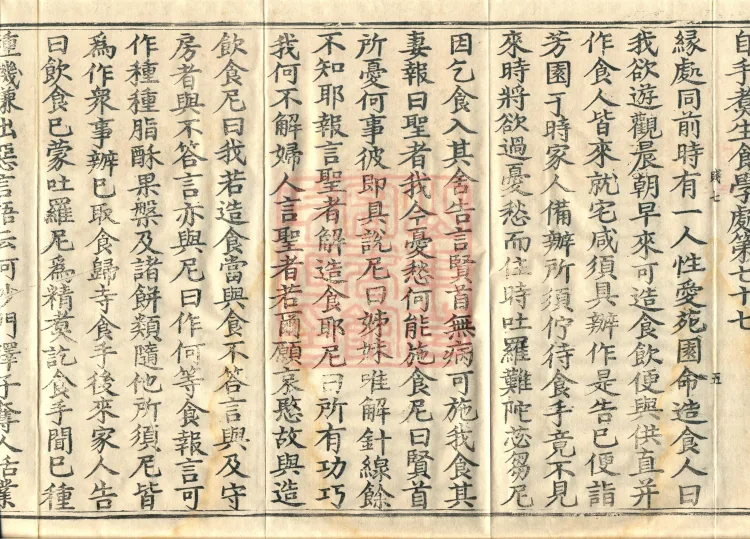 自手煮生食學處第七十七
七　五
緣處同前時有一人性愛苑園命造食人曰
我欲遊觀晨朝早來可造食飲便與供直并
作食人皆來就宅咸須具辦作是告已便詣
芳園于時家人備辦所須佇待食手竟不見
來時將欲過憂愁而住時吐羅難陀苾芻尼
因乞食入其舍告言賢首無病可施我食其
妻報曰聖者我今憂愁何能施食尼曰賢首
所憂何事彼即具說尼曰姊妹唯解針線餘
不知耶報言聖者解造食耶尼曰所有功巧
我何不解婦人言聖者若爾願哀愍故與造
飲食尼曰我若造食當與食不答言與及守
房者與不答言亦與尼曰作何等食報言可
作種種脂酥果槃及諸餅類隨他所須尼皆
爲作衆事辦已取食歸寺食手後來家人告
曰飲食已蒙吐羅尼爲精煮訖食手聞已種
種譏嫌出惡言語云何沙門釋子奪人活業